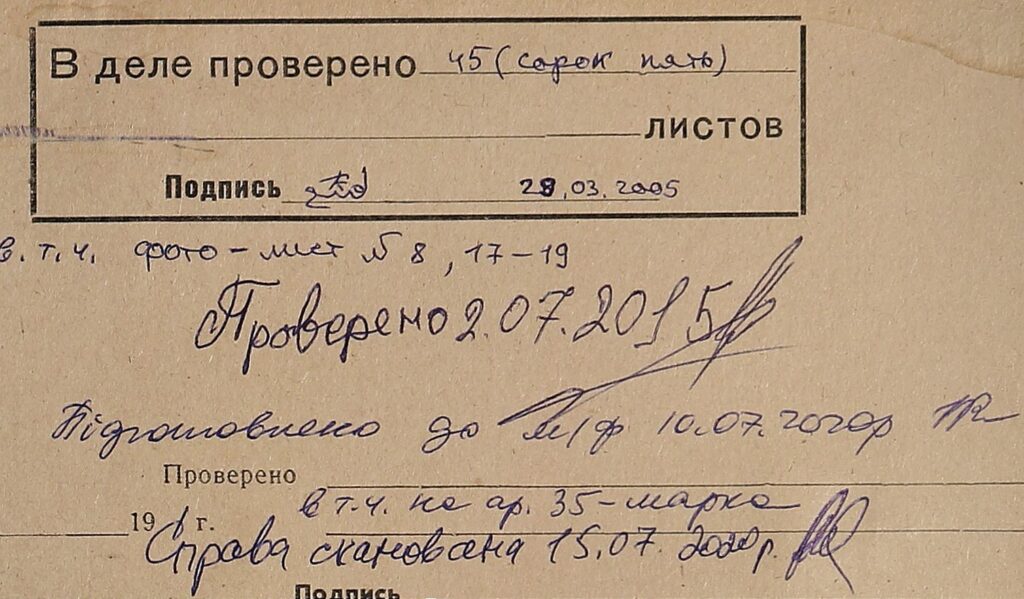 В деле проверено 45 (сорок пять)
листов
Подпись 28.03.2005
в. т. ч. фото - лист № 8, 17-19
Проверено 2.07.2015
Підготовлено до м/ф 10.07.2020р
Проверено
в т.ч. на ар. 35-марка
19 г.
Справа сканована 15.07.2020р.
Подпись